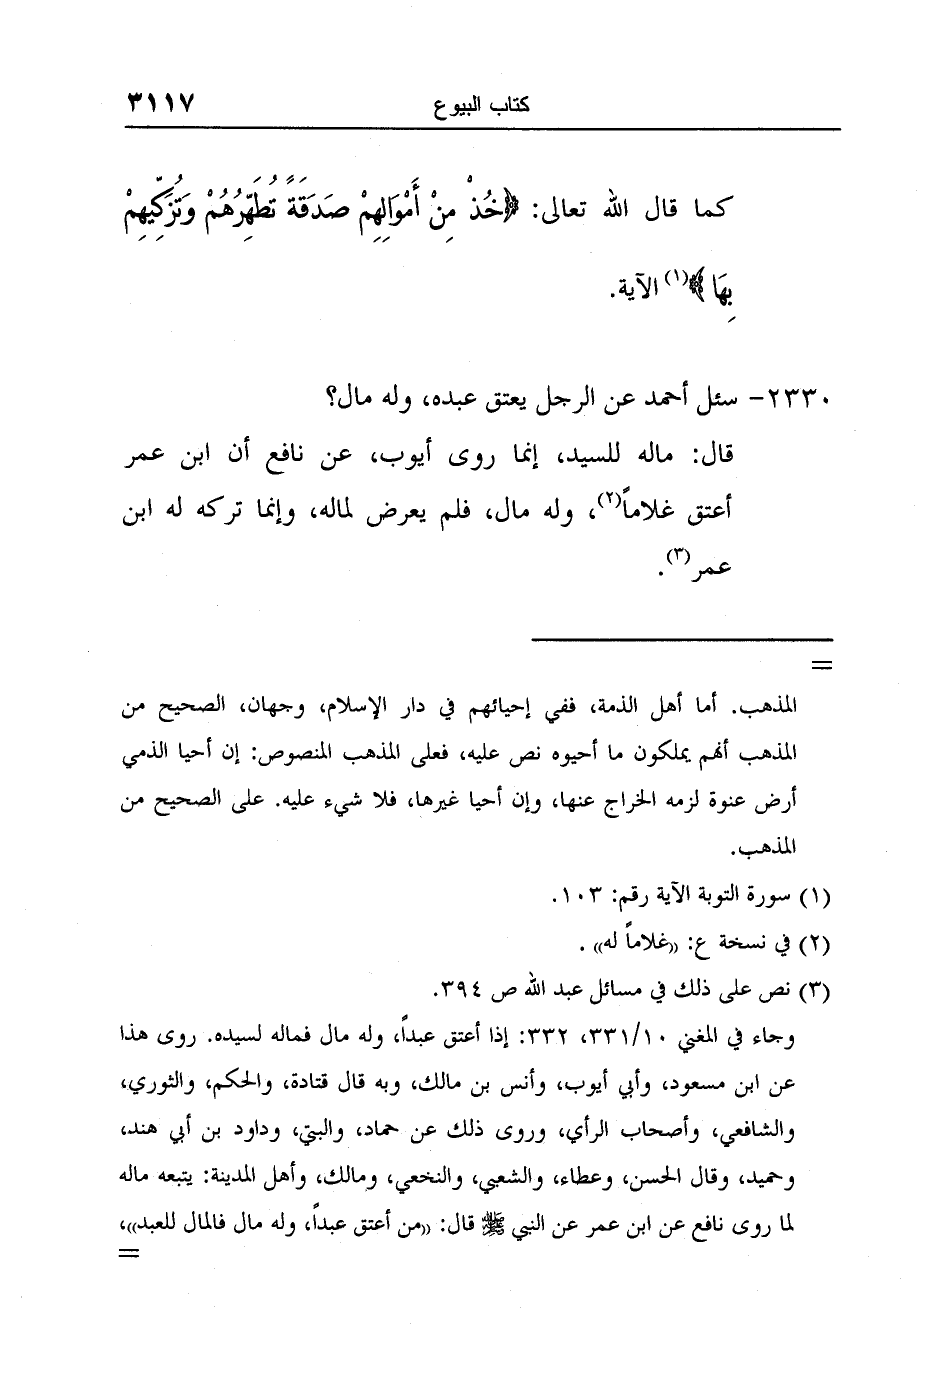 كتاب البيوع ٣١١٧
كما قال الله تعالى: ﴿خُذْ مِنْ أَمْوَالِهِمْ صَدَقَةً تُطَهِّرُهُمْ وَتُزَكِّيهِمْ
بِهَا﴾(١) الآية.
٢٣٣٠- سئل أحمد عن الرجل يعتق عبده، وله مال؟
قال: ماله للسيد، إنما روى أيوب، عن نافع أن ابن عمر
أعتق غلاماً(٢)، وله مال، فلم يعرض لماله، وإنما تركه له ابن
عمر(٣).
=
المذهب. أما أهل الذمة، ففي إحيائهم في دار الإسلام، وجهان، الصحيح من
المذهب أنهم يملكون ما أحيوه نص عليه، فعلى المذهب المنصوص: إن أحيا الذمي
أرض عنوة لزمه الخراج عنها، وإن أحيا غيرها، فلا شيء عليه. على الصحيح من
المذهب.
(١) سورة التوبة الآية رقم: ١٠٣.
(٢) في نسخة ع: «غلاماً له» .
(٣) نص على ذلك في مسائل عبد الله ص ٣٩٤.
وجاء في المغني ٣٣١/١٠، ٣٣٢: إذا أعتق عبداً، وله مال فماله لسيده. روى هذا
عن ابن مسعود، وأبي أيوب، وأنس بن مالك، وبه قال قتادة، والحكم، والثوري،
والشافعي، وأصحاب الرأي، وروى ذلك عن حماد، والبتي، وداود بن أبي هند،
وحميد، وقال الحسن، وعطاء، والشعبي، والنخعي، ومالك، وأهل المدينة: يتبعه ماله
لما روى نافع عن ابن عمر عن النبي ﷺ قال: «من أعتق عبداً، وله مال فالمال للعبد»،
=